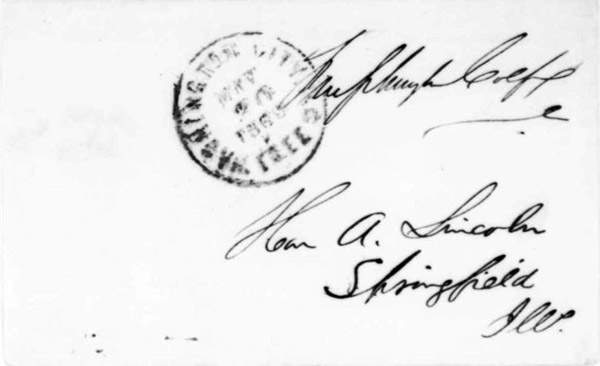 WASHINGTON CITY
MAY
20
1860
FREE
Schuyler Colfax
Hon A. Lincoln
Springfield
Ills.